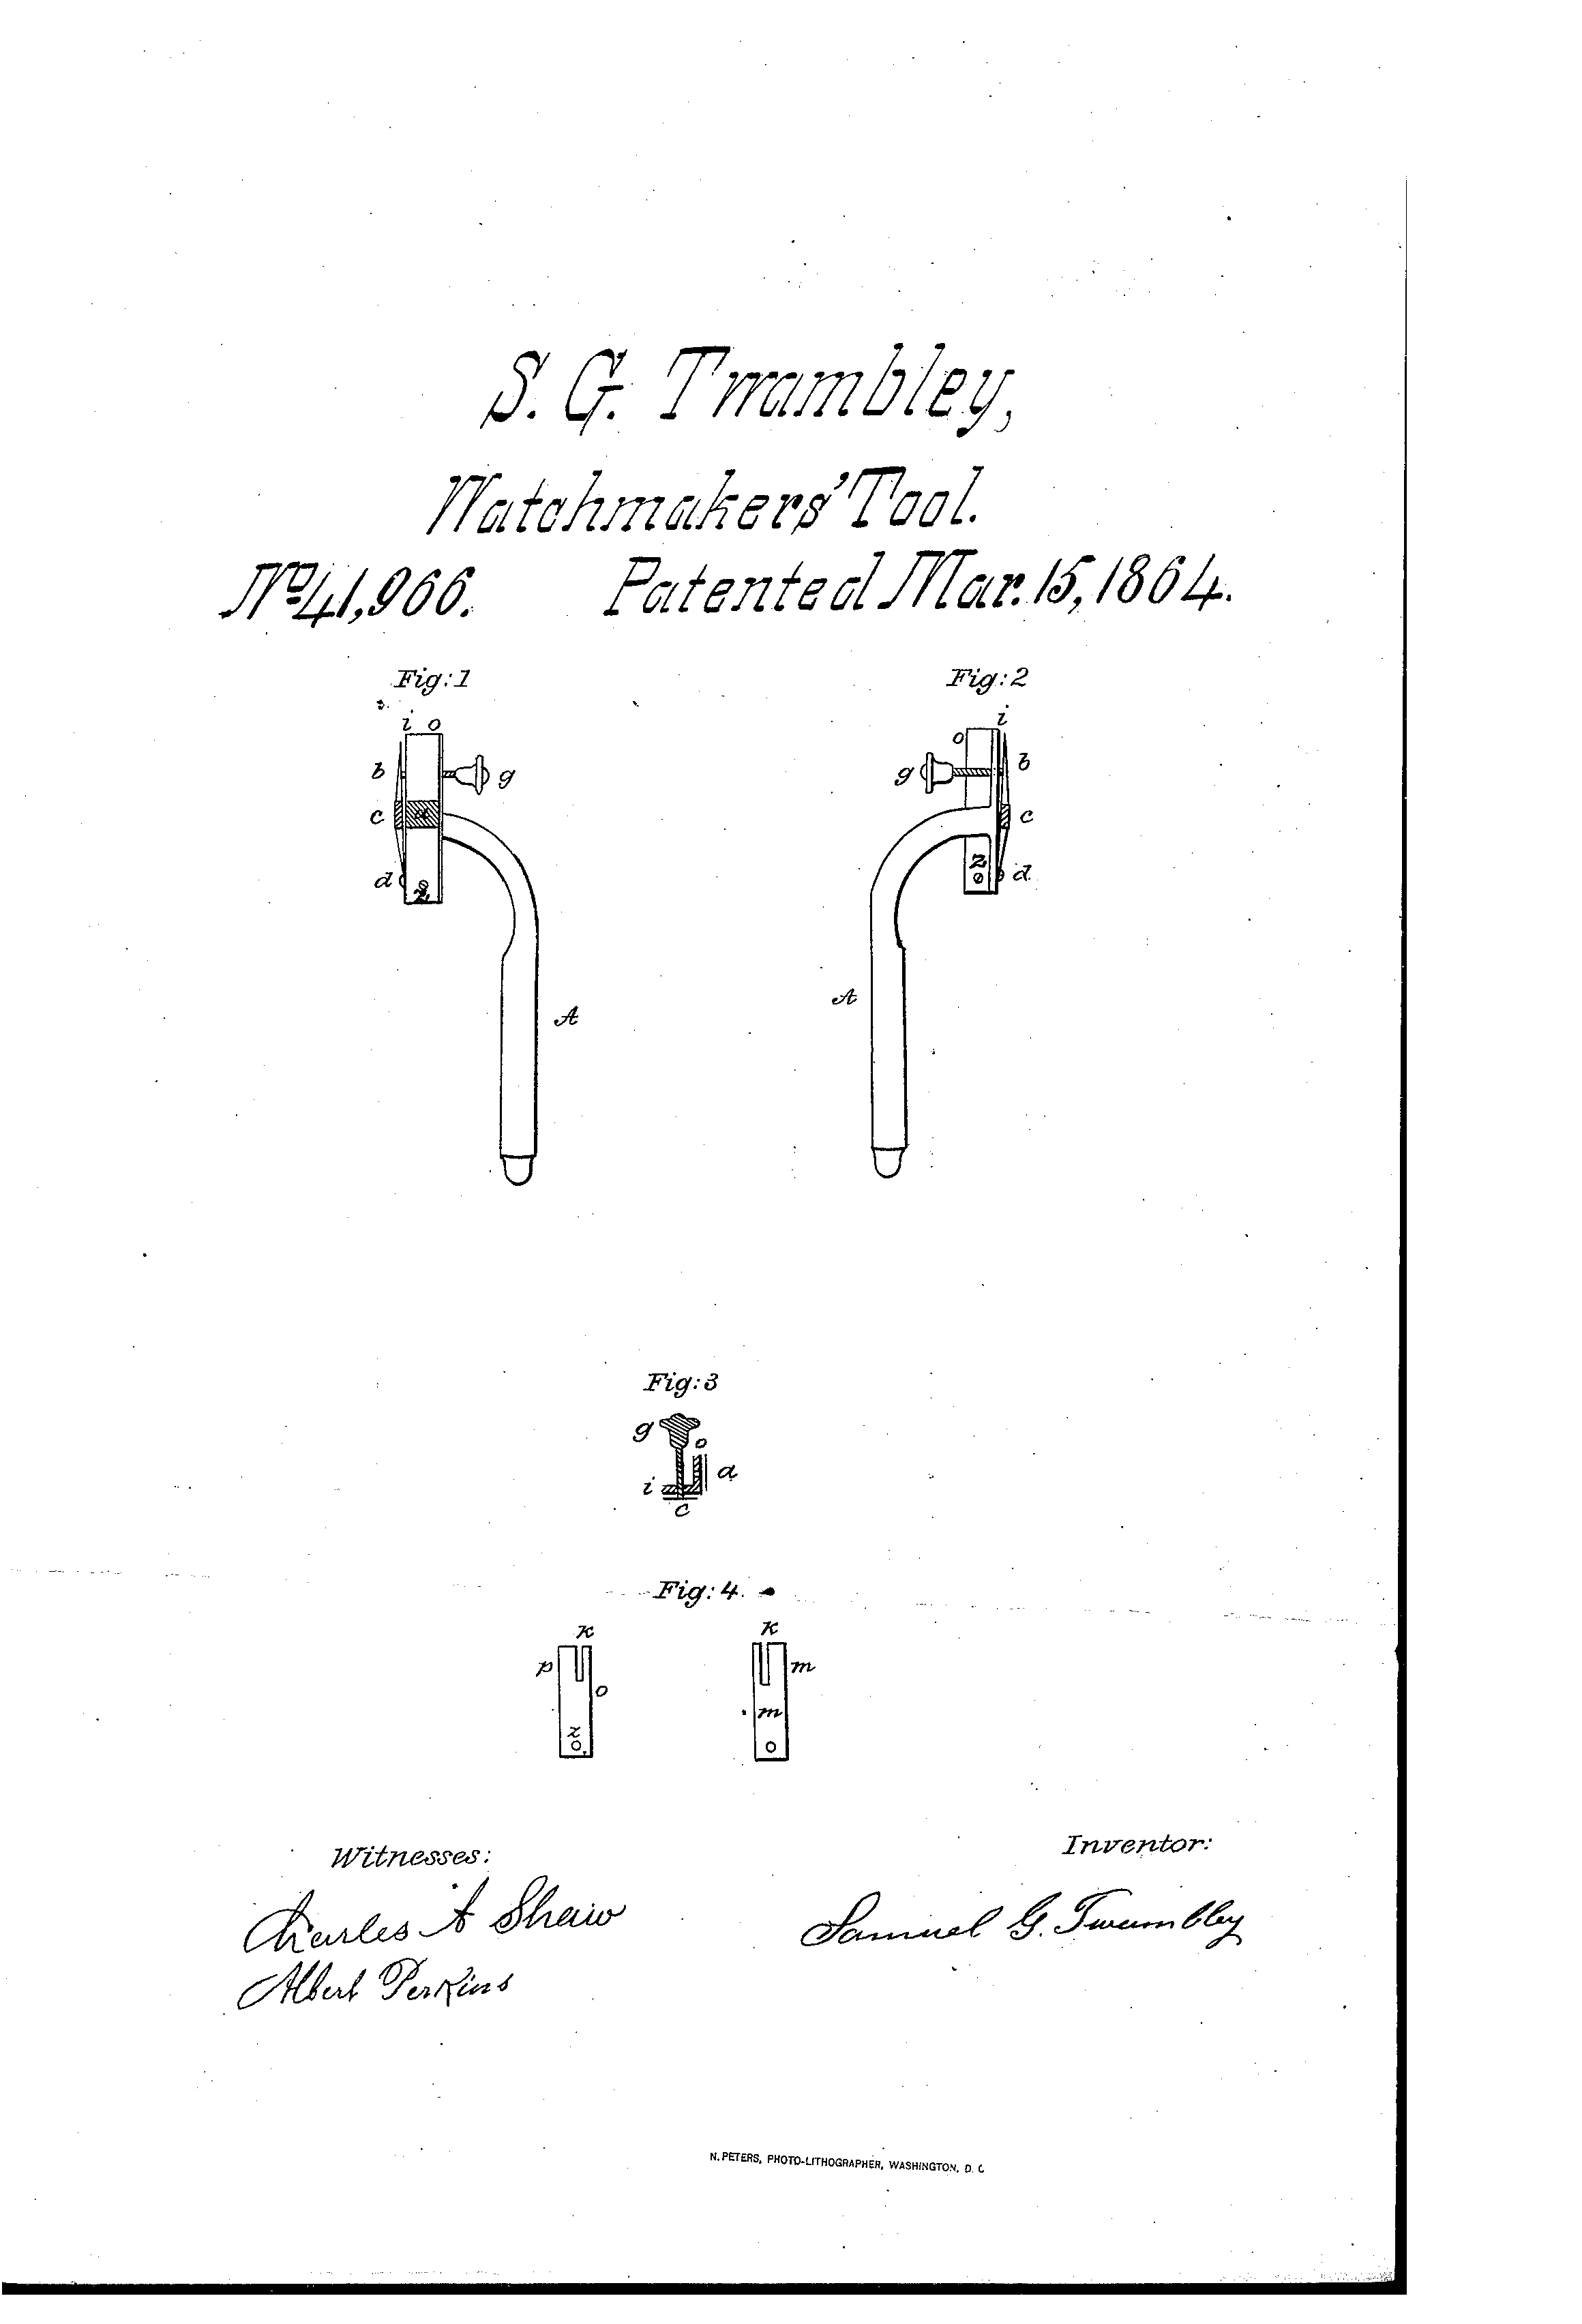 S. G. Twambley,
Watchmakers' Tool.
No 41,966. Patented Mar. 15, 1864.
Fig: 1 Fig: 2
i o
i
o
b g
g b
c a
c
d z
z d
A
A
Fig: 3
g o
a
i
c
Fig: 4.
k k
p m
o
m
z
Witnesses:
Inventor:
Charles A Shaw
Samuel G. Twambley
Albert Perkins
N. PETERS, PHOTO-LITHOGRAPHER, WASHINGTON, D. C